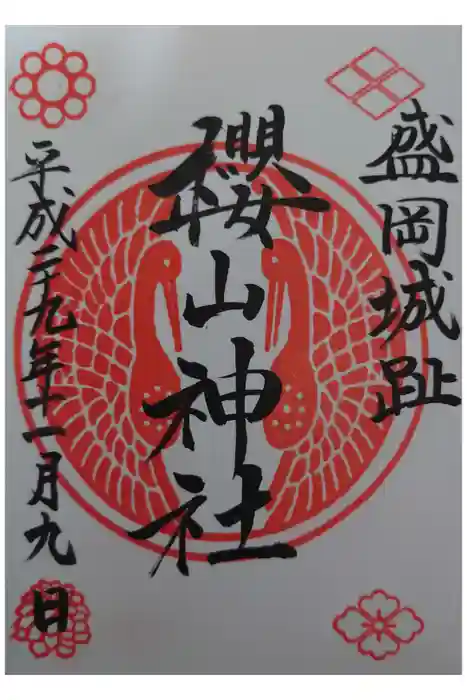 盛岡城趾
櫻山神社
平成二十九年十一月九日